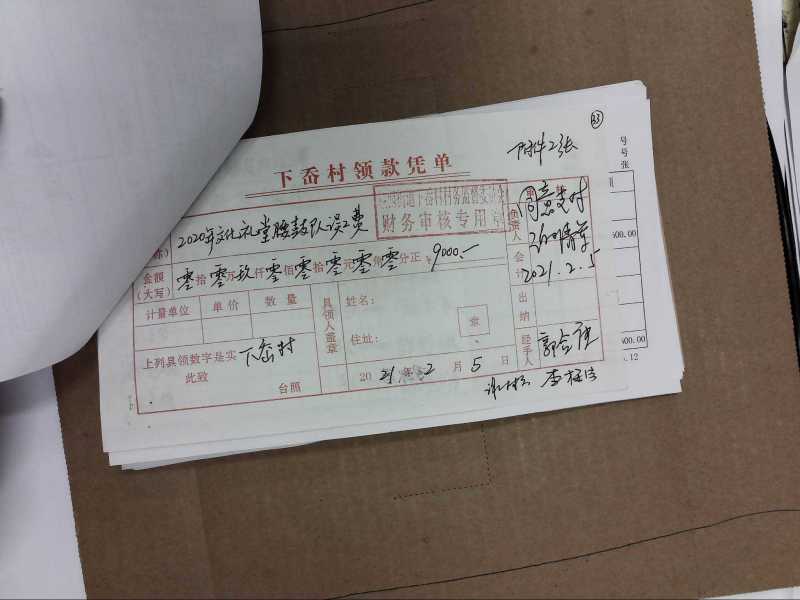 33
附件2张
下岙村领款凭单
财务审核专用章
2020年文化礼堂腰鼓队误工费
同意支付
负责人
金额
(大写)
零拾零万玖仟零佰零拾零元零角零分正 ¥9000.—
会计
2021.2.5
计量单位 单价 数量
具领人盖章
姓名:
章
住址:
出纳
上列具领数字是实
下岙村
此致
台照
2021年2月5日
经手人
号
号
张
500.00
500.00
.12